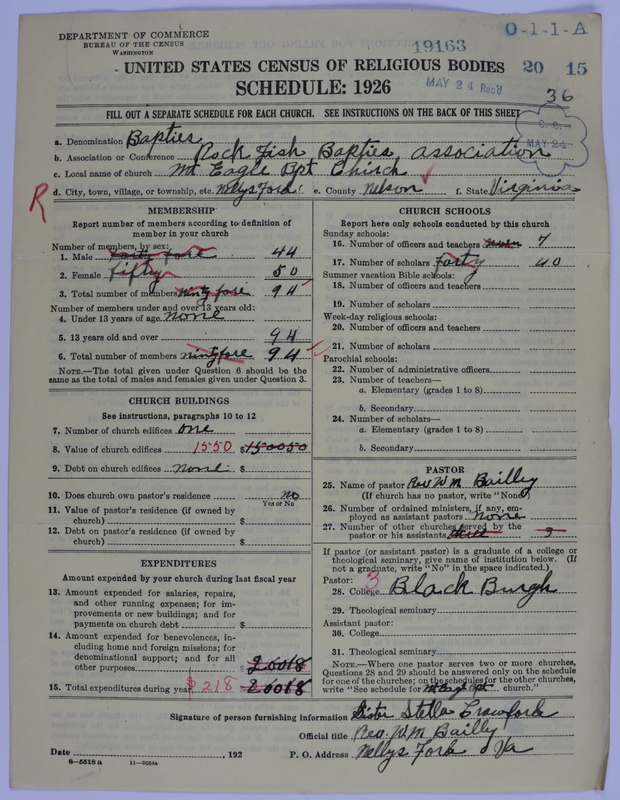 DEPARTMENT OF COMMERCE
BUREAU OF THE CENSUS
WASHINGTON
19163
0-1-1-A
UNITED STATES CENSUS OF RELIGIOUS BODIES
20 15
SCHEDULE: 1926
MAY 24 Rec'd
36
FILL OUT A SEPARATE SCHEDULE FOR EACH CHURCH. SEE INSTRUCTIONS ON THE BACK OF THIS SHEET
MAY 24
a. Denomination Bapties
b. Association or Conference Rock fish Bapties association
c. Local name of church Mt Eagle Bpt Chirch
R
d. City, town, village, or township, etc. Nellys Ford e. County Nelson f. State Virginia
MEMBERSHIP
Report number of members according to definition of
member in your church
Number of members, by sex:
1. Male forty fore 44
2. Female fifty 50
3. Total number of members ninty fore 94
Number of members under and over 13 years old:
4. Under 13 years of age none
5. 13 years old and over 94
6. Total number of members nintyfore 94
NOTE.—The total given under Question 6 should be
same as the total of males and females given under Question 3.
CHURCH BUILDINGS
See instructions, paragraphs 10 to 12
7. Number of church edifices one
8. Value of church edifices 1550 $ 150050
9. Debt on church edifices none $
10. Does church own pastor's residence no
Yes or No
11. Value of pastor's residence (if owned by
church) $
12. Debt on pastor's residence (if owned by
church) $
EXPENDITURES
Amount expended by your church during last fiscal year
13. Amount expended for salaries, repairs,
and other running expenses; for im-
provements or new buildings; and for
payments on church debt $
14. Amount expended for benevolences, in-
cluding home and foreign missions; for
denominational support; and for all
other purposes 20018
15. Total expenditures during year $218 20018
CHURCH SCHOOLS
Report here only schools conducted by this church
Sunday schools:
16. Number of officers and teachers seven 7
17. Number of scholars forty 40
Summer vacation Bible schools:
18. Number of officers and teachers
19. Number of scholars
Week-day religious schools:
20. Number of officers and teachers
21. Number of scholars
Parochial schools:
22. Number of administrative officers
23. Number of teachers—
a. Elementary (grades 1 to 8)
b. Secondary
24. Number of scholars—
a. Elementary (grades 1 to 8)
b. Secondary
PASTOR
25. Name of pastor Rev W M Bailly
(If church has no pastor, write "None)
26. Number of ordained ministers, if any, em-
ployed as assistant pastors none
27. Number of other churches served by the
pastor or his assistants 3
If pastor (or assistant pastor) is a graduate of a college or
theological seminary, give name of institution below. (If
not a graduate, write "No" in the space indicated.)
Pastor: 3
28. College Black Burgh
29. Theological seminary
Assistant pastor:
30. College
31. Theological seminary
NOTE.—Where one pastor serves two or more churches,
Questions 28 and 29 should be answered only on the schedule
for one of the churches; on the schedules for the other churches,
write "See schedule for Mt Eagle Bpt church."
Signature of person furnishing information Sister Stella Crawfork
Official title Rev. W M Bailly
Date , 192 P. O. Address Nellys Fork Va
8—5518 a 11—9554a